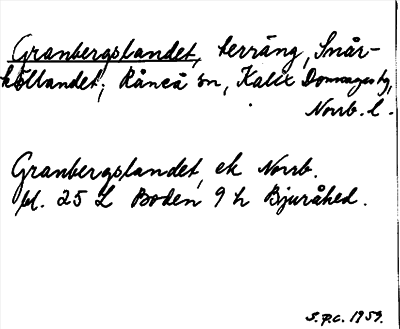 Granbergslandet, terräng, Snår-
kölandet, Råneå sn, Kalix Domsagas tg,
Norrb. l.
Granbergslandet, ek Norrb.
bl. 25 L Boden 9 h Bjuråhed.
S.P.C. 1959.